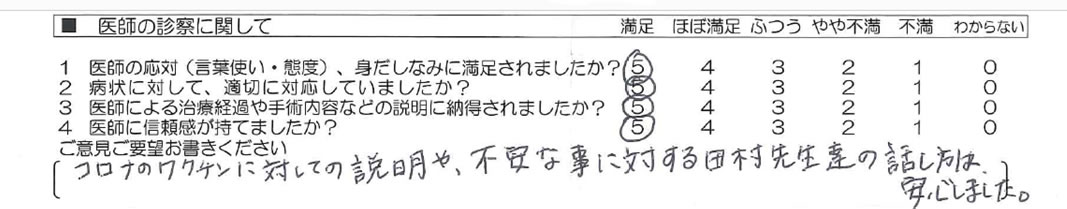 ■ 医師の診察に関して 満足 ほぼ満足 ふつう やや不満 不満 わからない
1 医師の応対（言葉使い・態度）、身だしなみに満足されましたか？ 5 4 3 2 1 0
2 病状に対して、適切に対応していましたか？ 5 4 3 2 1 0
3 医師による治療経過や手術内容などの説明に納得されましたか？ 5 4 3 2 1 0
4 医師に信頼感が持てましたか？ 5 4 3 2 1 0
ご意見ご要望お書きください
コロナのワクチンに対しての説明や、不安な事に対する田村先生達の話し方は、
安心しました。